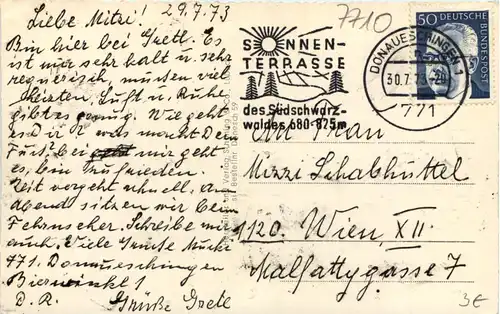 29.7.73
Liebe Mitzi!
Bin hier bei Gretl. Es
ist nur sehr kalt u. sehr
regnerisch, müssen viel
heizten, Luft u. Ruhe
gibt es genug. Wie geht
es d u? was macht Dein
Fuß? bei mir geht
es, bin zufrieden.
Zeit vergeht schnell, am
Abend sitzen wir beim
Fehrnseher. Schreibe mir
auch. Viele Grüße
771. Donaueschingen
Bierwinkl 1
D. R. Grüße Grete
7710
SONNEN-
TERRASSE
des Südschwarz-
waldes 680-875m
DONAUESCHINGEN 1
30.7.73-20
771
50 DEUTSCHE
BUNDESPOST
An Frau
Mizzi Schabhüttel
1120. Wien, XII
Malfattygasse 7
3€